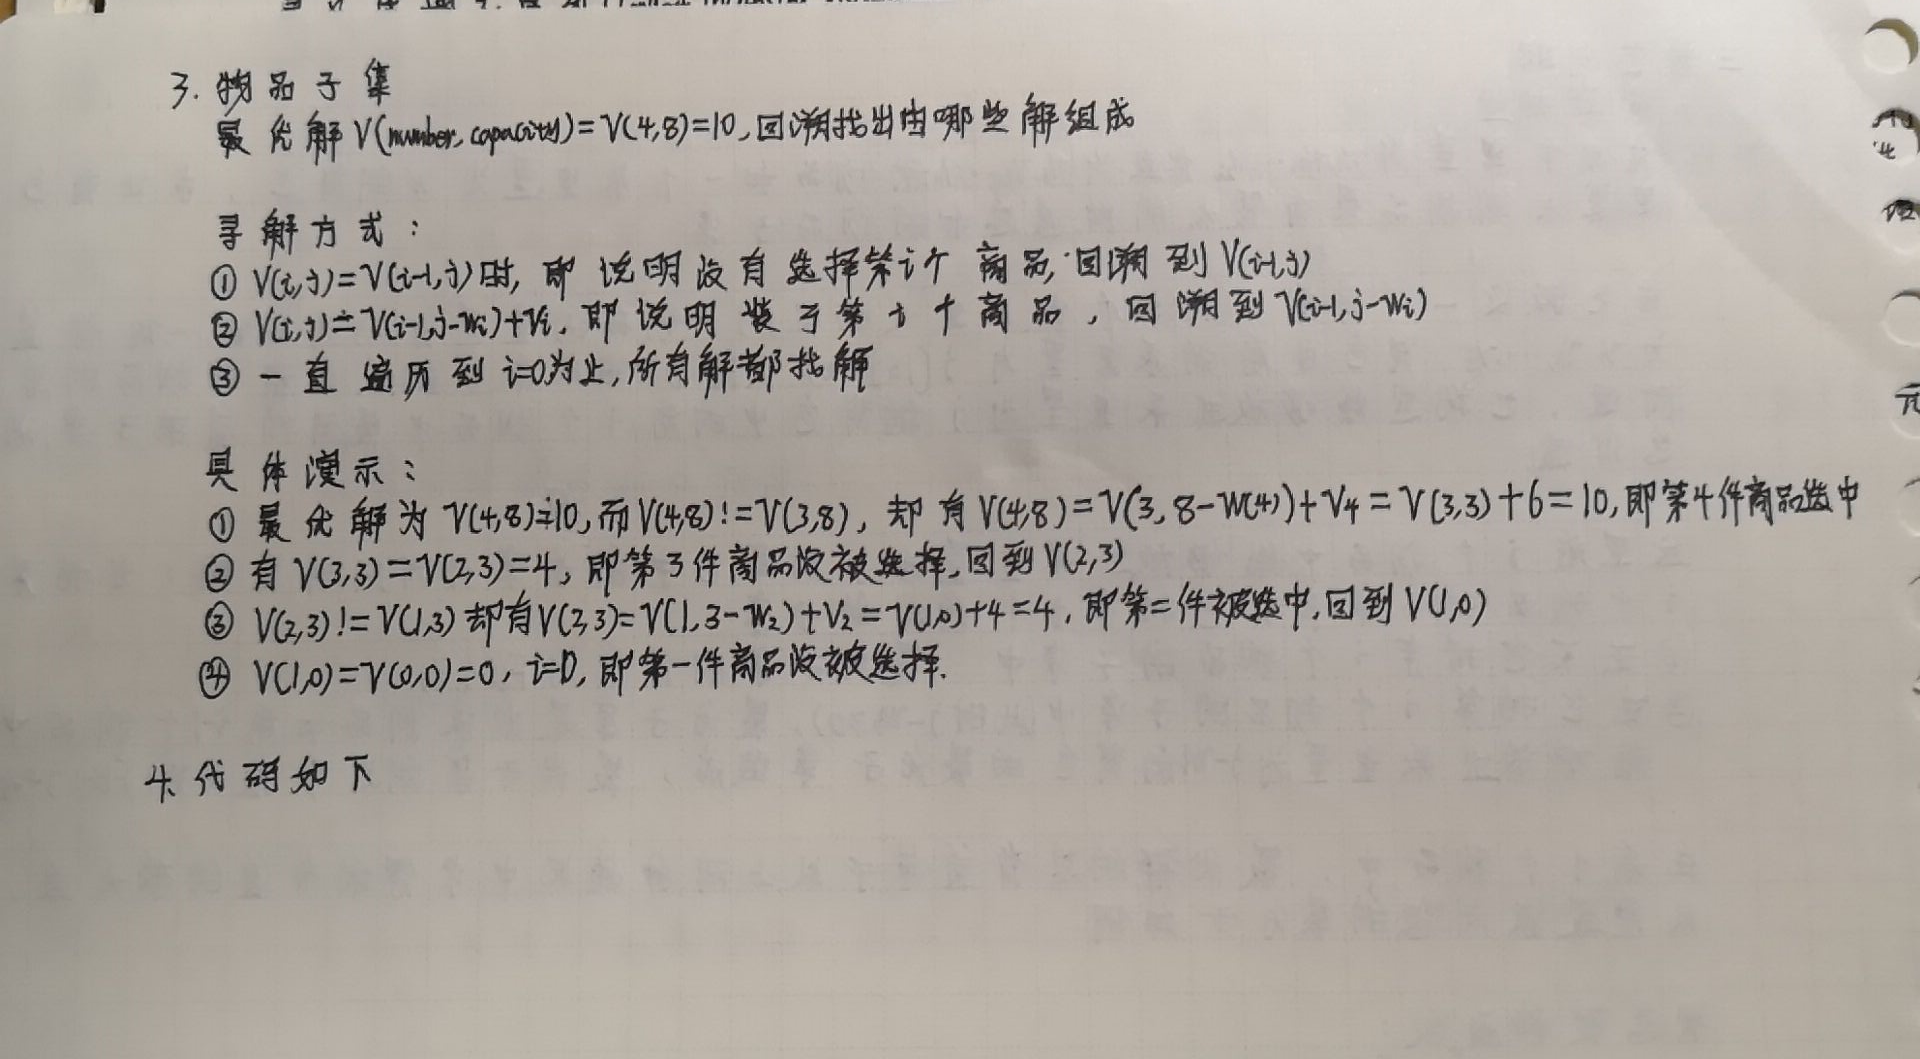 3. 物品子集
最优解V(number, capacity)=V(4,8)=10,回溯找出由哪些解组成
寻解方式：
① V(i,j)=V(i-1,j)时, 即说明没有选择第i个商品,回溯到V(i-1,j)
② V(i,j)=V(i-1,j-wi)+vi, 即说明装了第i个商品，回溯到V(i-1,j-wi)
③ 一直遍历到i=0为止,所有解都找解
具体演示：
① 最优解为V(4,8)=10,而V(4,8)!=V(3,8), 却有V(4,8)=V(3,8-W(4))+V4=V(3,3)+6=10,即第4件商品选中
② 有V(3,3)=V(2,3)=4, 即第3件商品没被选择,回到V(2,3)
③ V(2,3)!=V(1,3)却有V(2,3)=V(1,3-W2)+V2=V(1,0)+4=4, 即第二件被选中,回到V(1,0)
④ V(1,0)=V(0,0)=0, i=0, 即第一件商品没被选择.
4.代码如下